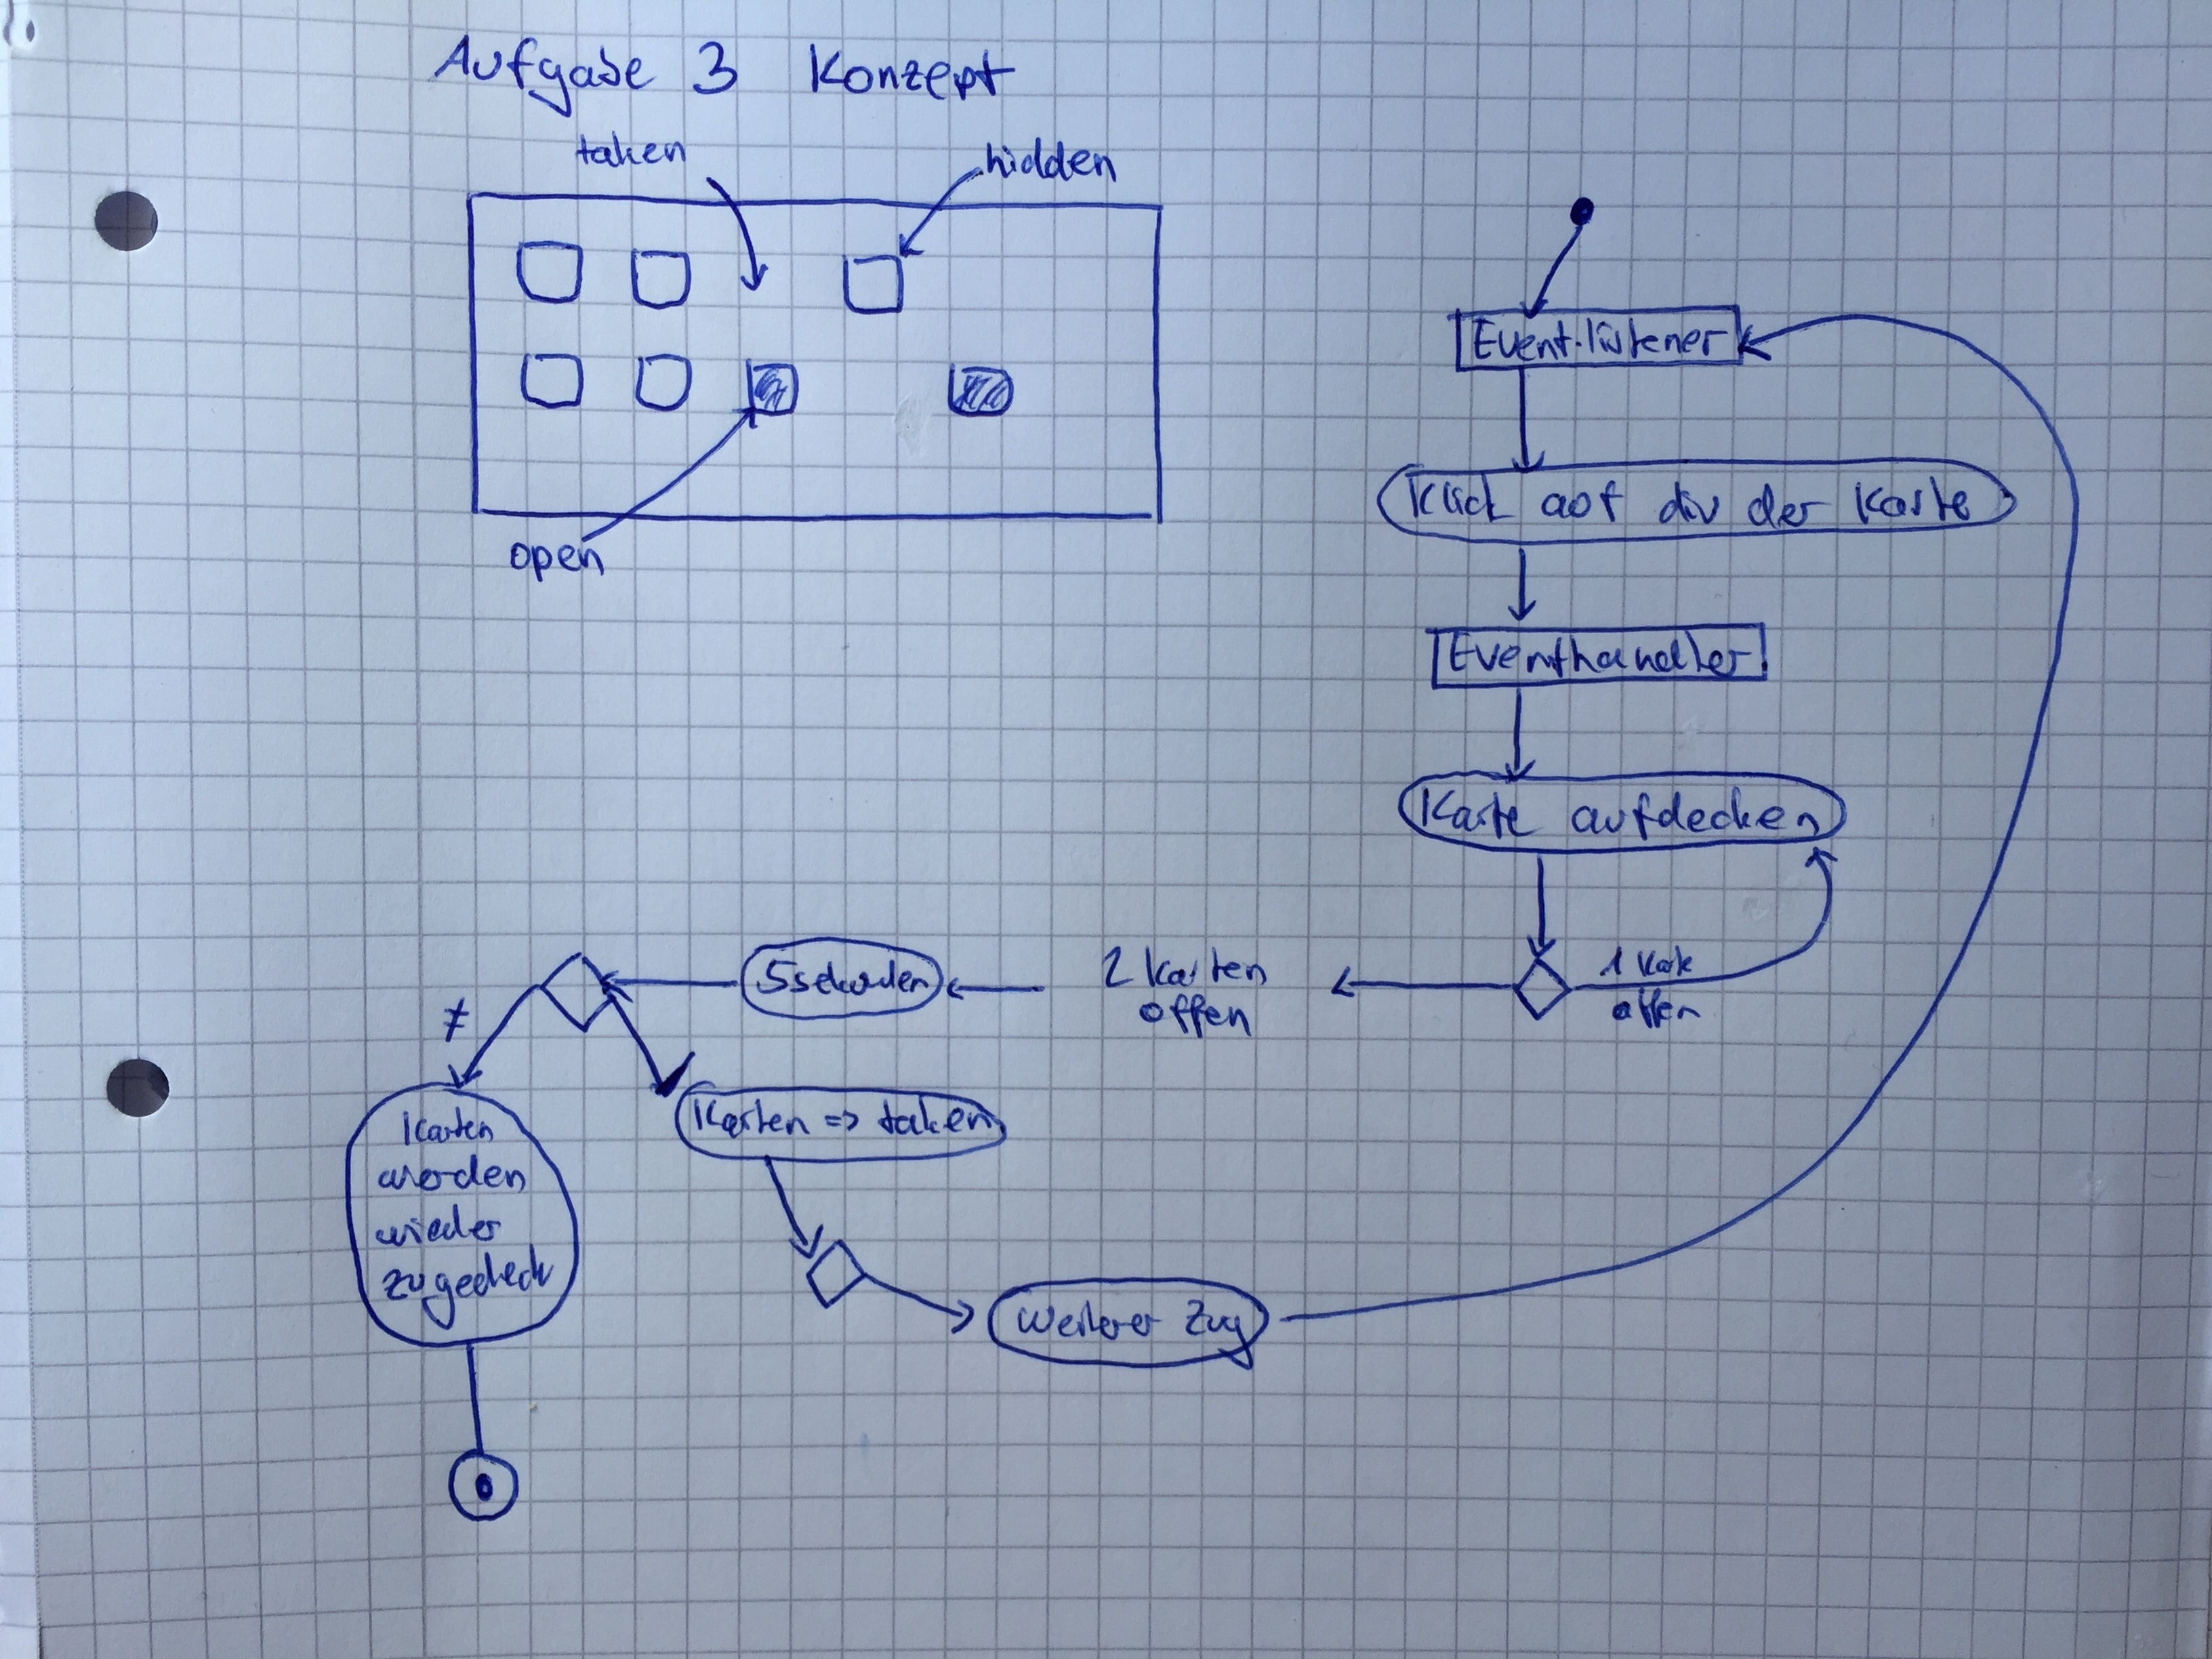 Aufgabe 3 Konzept
taken
hidden
open
Event-listener
Klick auf div der Karte
Eventhandler
Karte aufdecken
1 Karte
offen
2 Karten
offen
5 sekunden
≠
Karten
werden
wieder
zugedeckt
Karten => taken
weiterer Zug